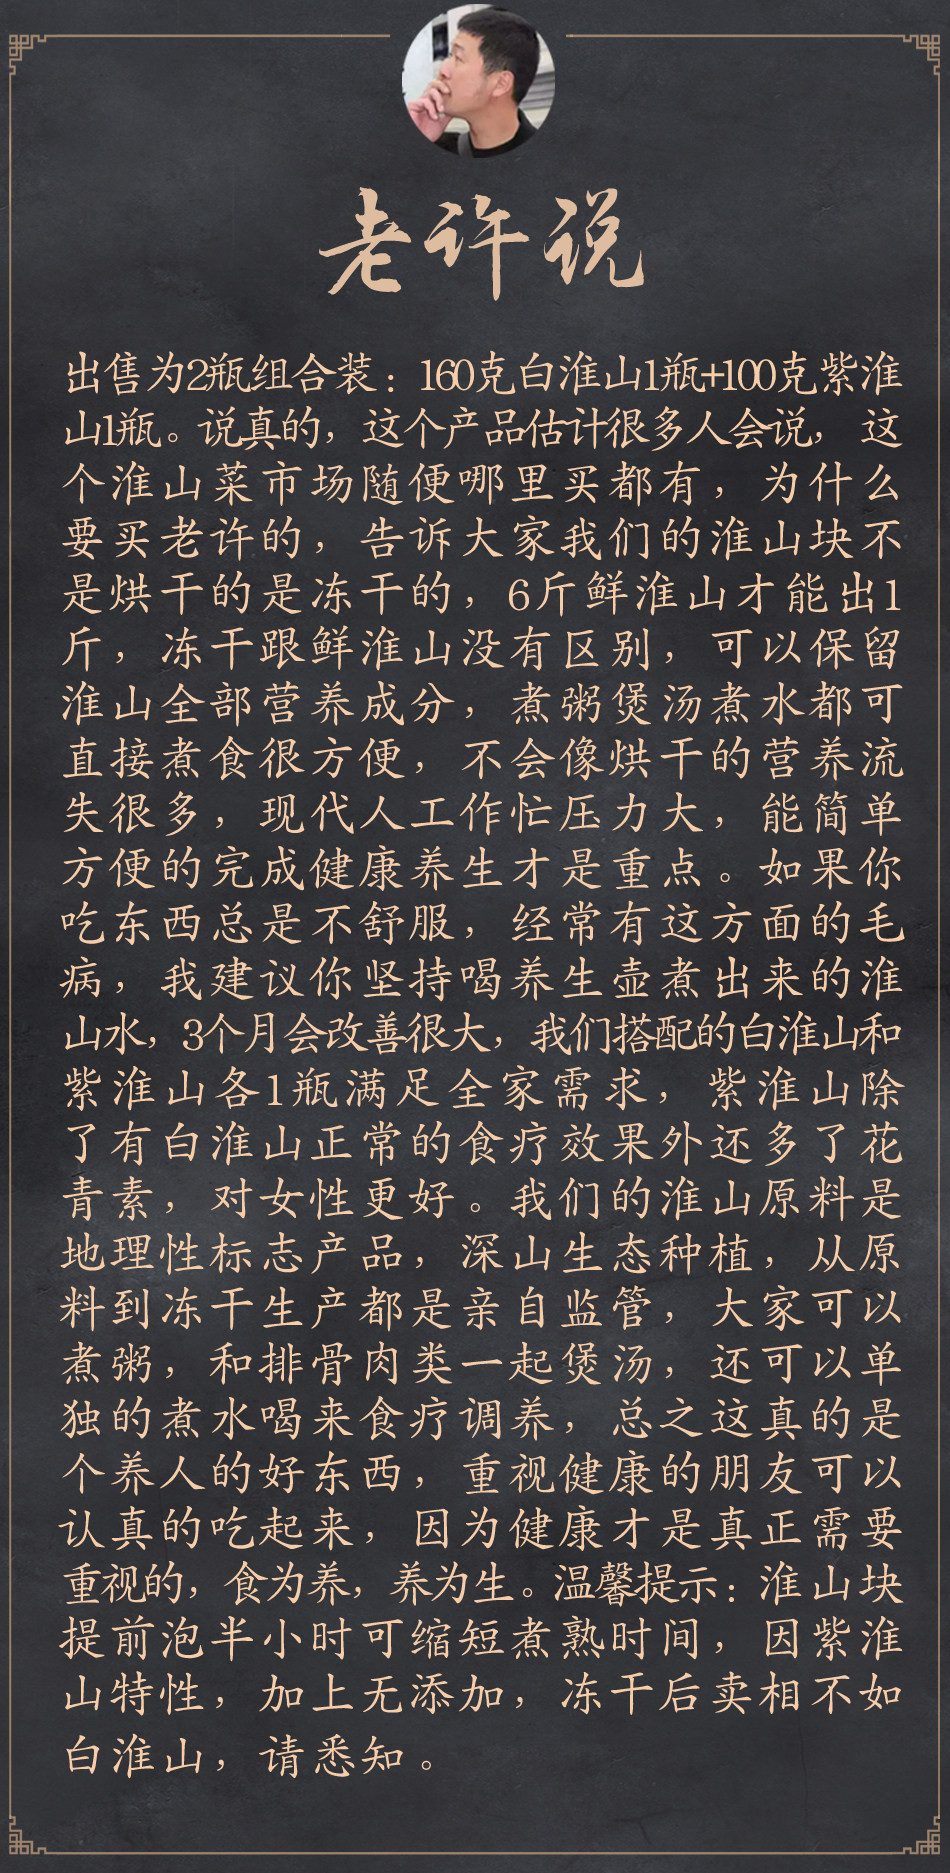 老许说
出售为2瓶组合装：160克白淮山1瓶+100克紫淮
山1瓶。说真的，这个产品估计很多人会说，这
个淮山菜市场随便哪里买都有，为什么
要买老许的，告诉大家我们的淮山块不
是烘干的是冻干的，6斤鲜淮山才能出1
斤，冻干跟鲜淮山没有区别，可以保留
淮山全部营养成分，煮粥煲汤煮水都可
直接煮食很方便，不会像烘干的营养流
失很多，现代人工作忙压力大，能简单
方便的完成健康养生才是重点。如果你
吃东西总是不舒服，经常有这方面的毛
病，我建议你坚持喝养生壶煮出来的淮
山水，3个月会改善很大，我们搭配的白淮山和
紫淮山各1瓶满足全家需求，紫淮山除
了有白淮山正常的食疗效果外还多了花
青素，对女性更好。我们的淮山原料是
地理性标志产品，深山生态种植，从原
料到冻干生产都是亲自监管，大家可以
煮粥，和排骨肉类一起煲汤，还可以单
独的煮水喝来食疗调养，总之这真的是
个养人的好东西，重视健康的朋友可以
认真的吃起来，因为健康才是真正需要
重视的，食为养，养为生。温馨提示：淮山块
提前泡半小时可缩短煮熟时间，因紫淮
山特性，加上无添加，冻干后卖相不如
白淮山，请悉知。